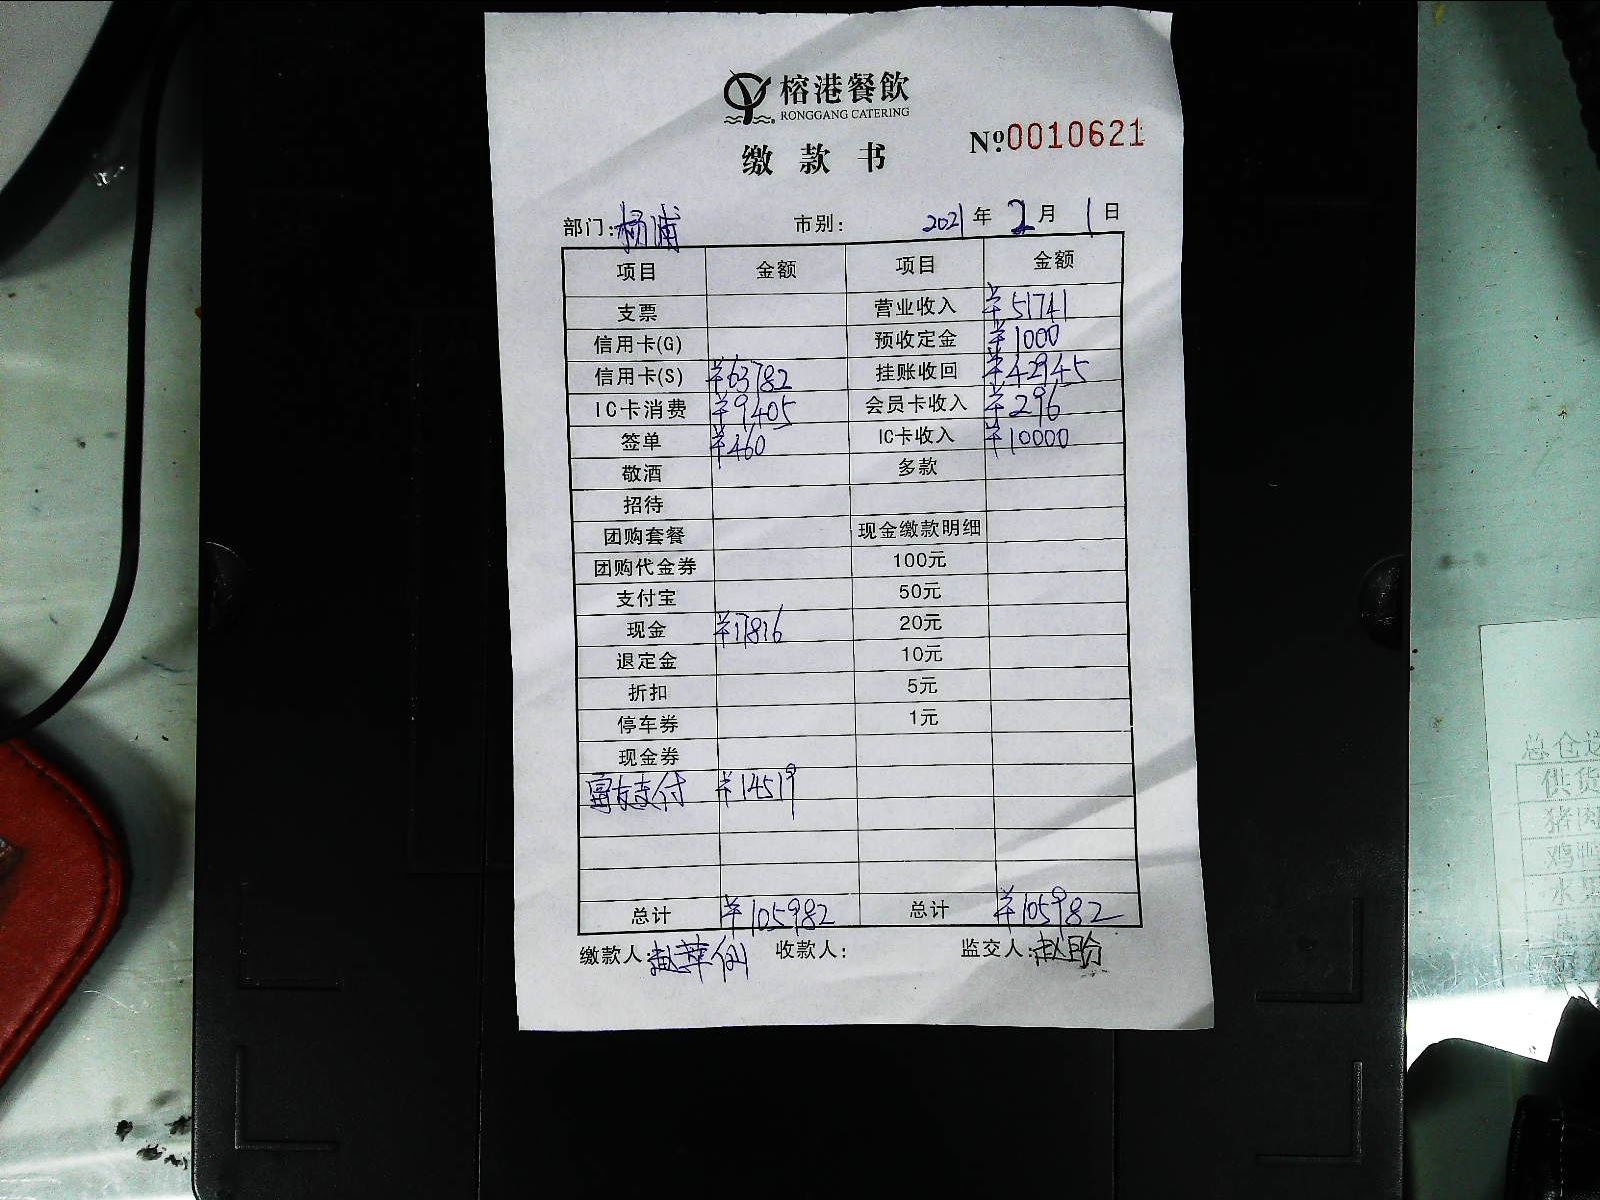 榕港餐飲
RONGGANG CATERING
缴款书
№0010621
部门:杨浦 市别: 2021年2月1日
项目 金额 项目 金额
支票 营业收入 ¥51741
信用卡(G) 预收定金 ¥1000
信用卡(S) ¥63782 挂账收回 ¥42945
IC卡消费 ¥9405 会员卡收入 ¥296
签单 ¥460 IC卡收入 ¥10000
敬酒 多款
招待
团购套餐 现金缴款明细
团购代金券 100元
支付宝 50元
现金 ¥17816 20元
退定金 10元
折扣 5元
停车券 1元
现金券
富友支付 ¥14519
总计 ¥105982 总计 ¥105982
缴款人: 收款人: 监交人:赵盼
总仓
供货
猪肉
水果